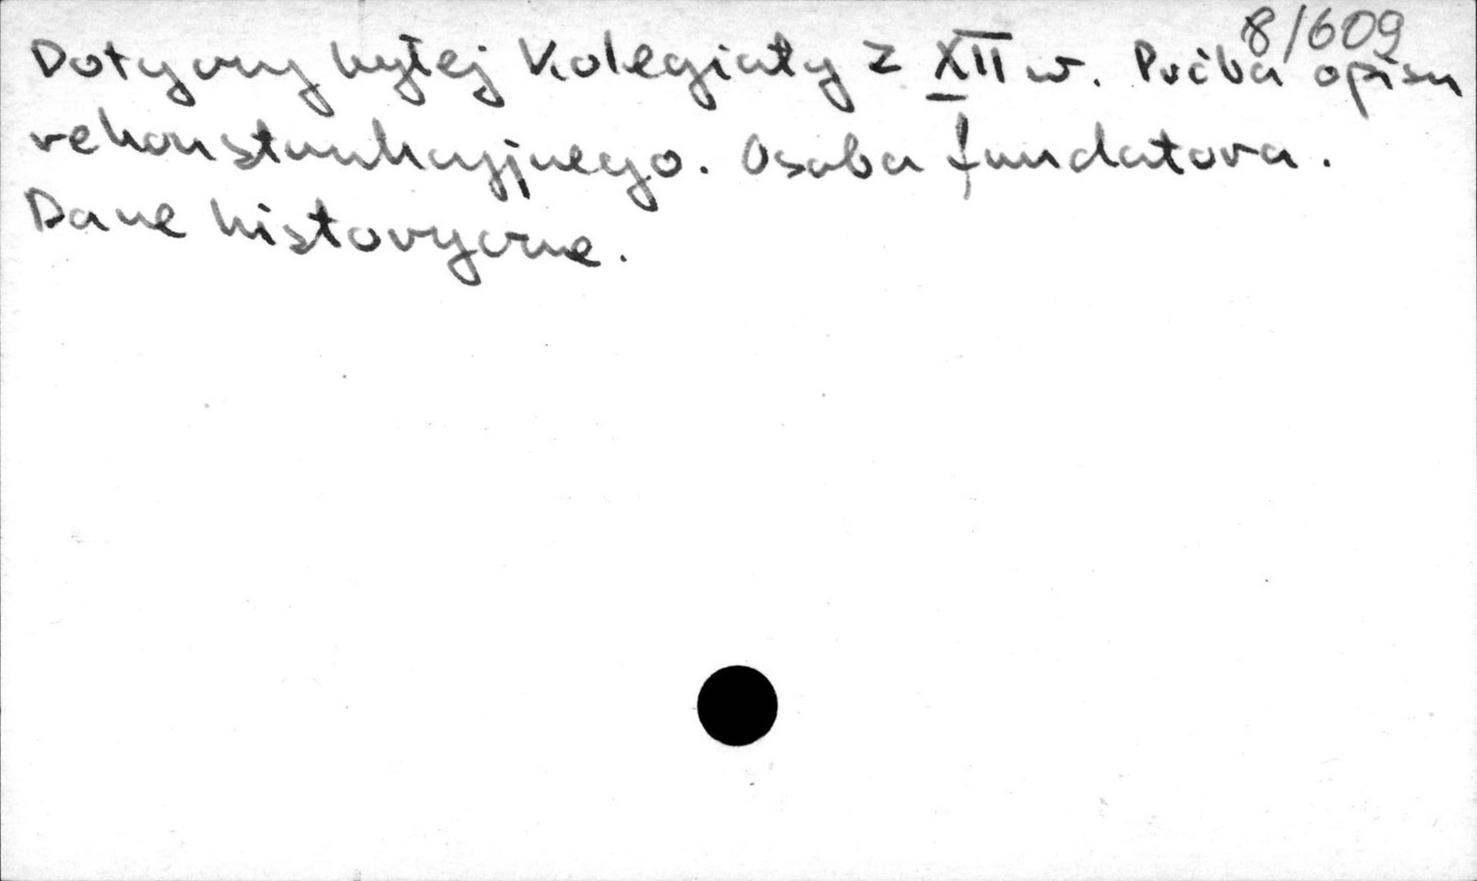 8/609
Dotyczy byłej Kolegiaty z XII w. Próba opisu
rekonstrukcyjnego. Osoba fundatora.
Dane historyczne.